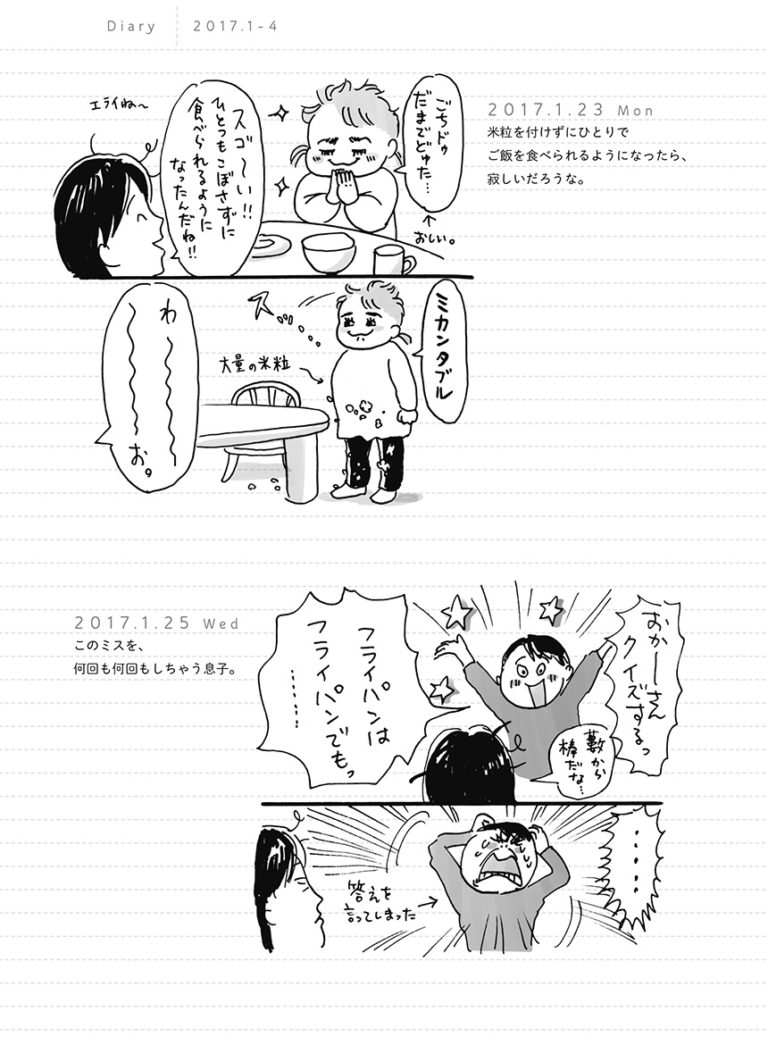 Diary 2017.1-4
2017.1.23 Mon
米粒を付けずにひとりで
ご飯を食べられるようになったら、
寂しいだろうな。
ごちドゥ
だまでどゅた…
↑
おしい。
スゴ〜い!!
ひとつもこぼさずに
食べられるように
なったんだね!!
エライね〜
ミカンタブル
ス
大量の米粒
わ〜〜〜お。
2017.1.25 Wed
このミスを、
何回も何回もしちゃう息子。
おかーさん
クイズするっ
藪から
棒だな…
フライパンは
フライパンでもっ
……
……
答えを
言ってしまった→